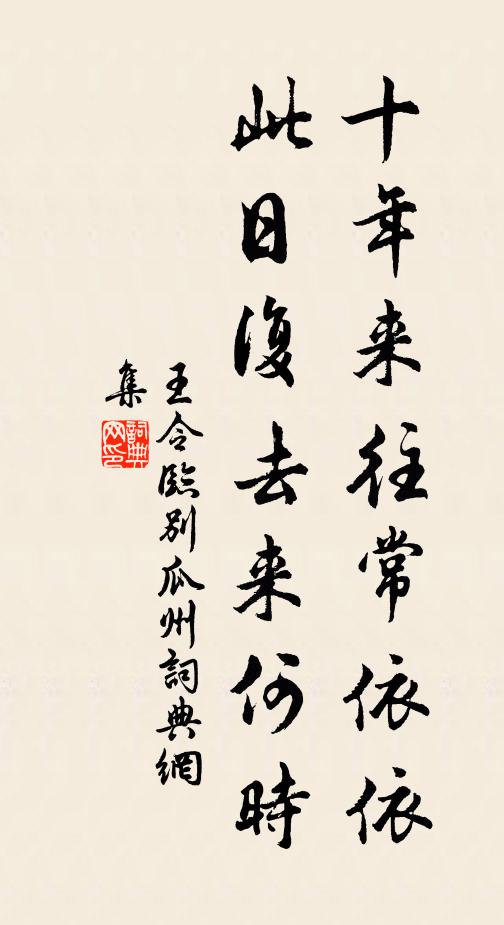 十年来往常依依
此日復去来何時
王令臨别瓜州詞典網
集
詞典
网印